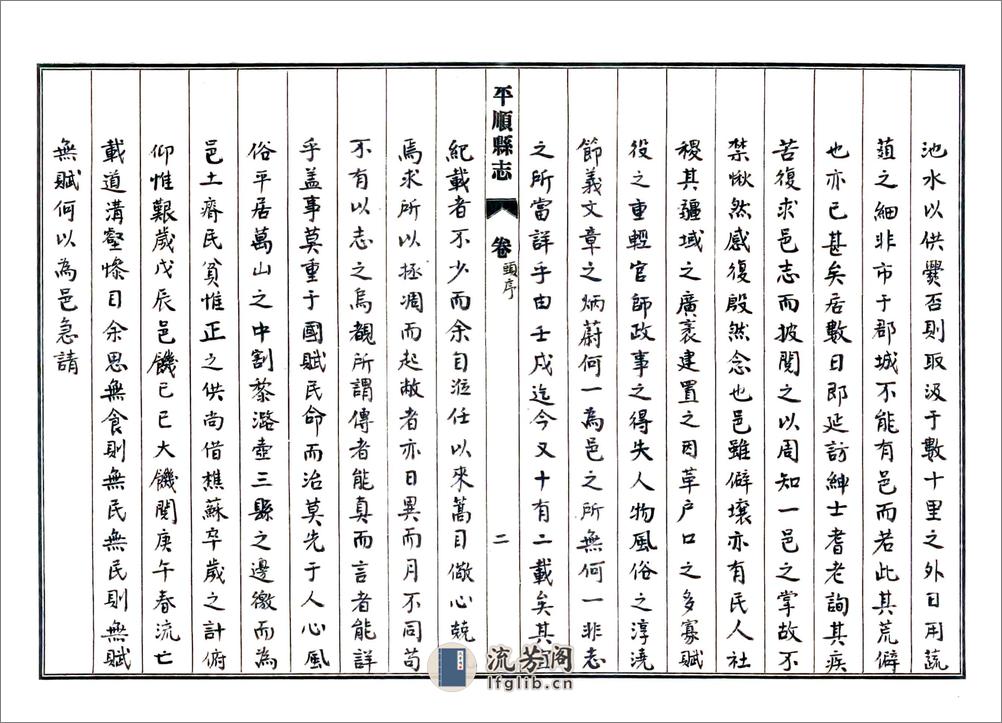 池水以供爨否則取汲于數十里之外日用蔬
葅之細非市于郡城不能有邑而若此其荒僻
也亦已甚矣居數日即延訪紳士耆老詢其疾
苦復求邑志而披閱之以周知一邑之掌故不
禁愀然感復殷然念也邑雖僻壤亦有民人社
稷其疆域之廣袤建置之因革戶口之多寡賦
役之重輕官師政事之得失人物風俗之淳澆
節義文章之炳蔚何一為邑之所無何一非志
之所當詳乎由壬戌迄今又十有二載矣其
平順縣志
卷頭序
二
紀載者不少而余自涖任以來蒿目儆心兢
焉求所以拯凋而起敝者亦日異而月不同苟
不有以志之烏覩所謂傳者能真而言者能詳
乎盖事莫重于國賦民命而治莫先于人心風
俗平居萬山之中割黎潞壺三縣之邊徼而為
邑土瘠民貧惟正之供尚借樵蘇卒歲之計俯
仰惟艱歲戊辰邑饑己巳大饑閱庚午春流亡
載道溝壑慘目余思無食則無民無民則無賦
無賦何以為邑急請
流芳阁
lfglib.cn